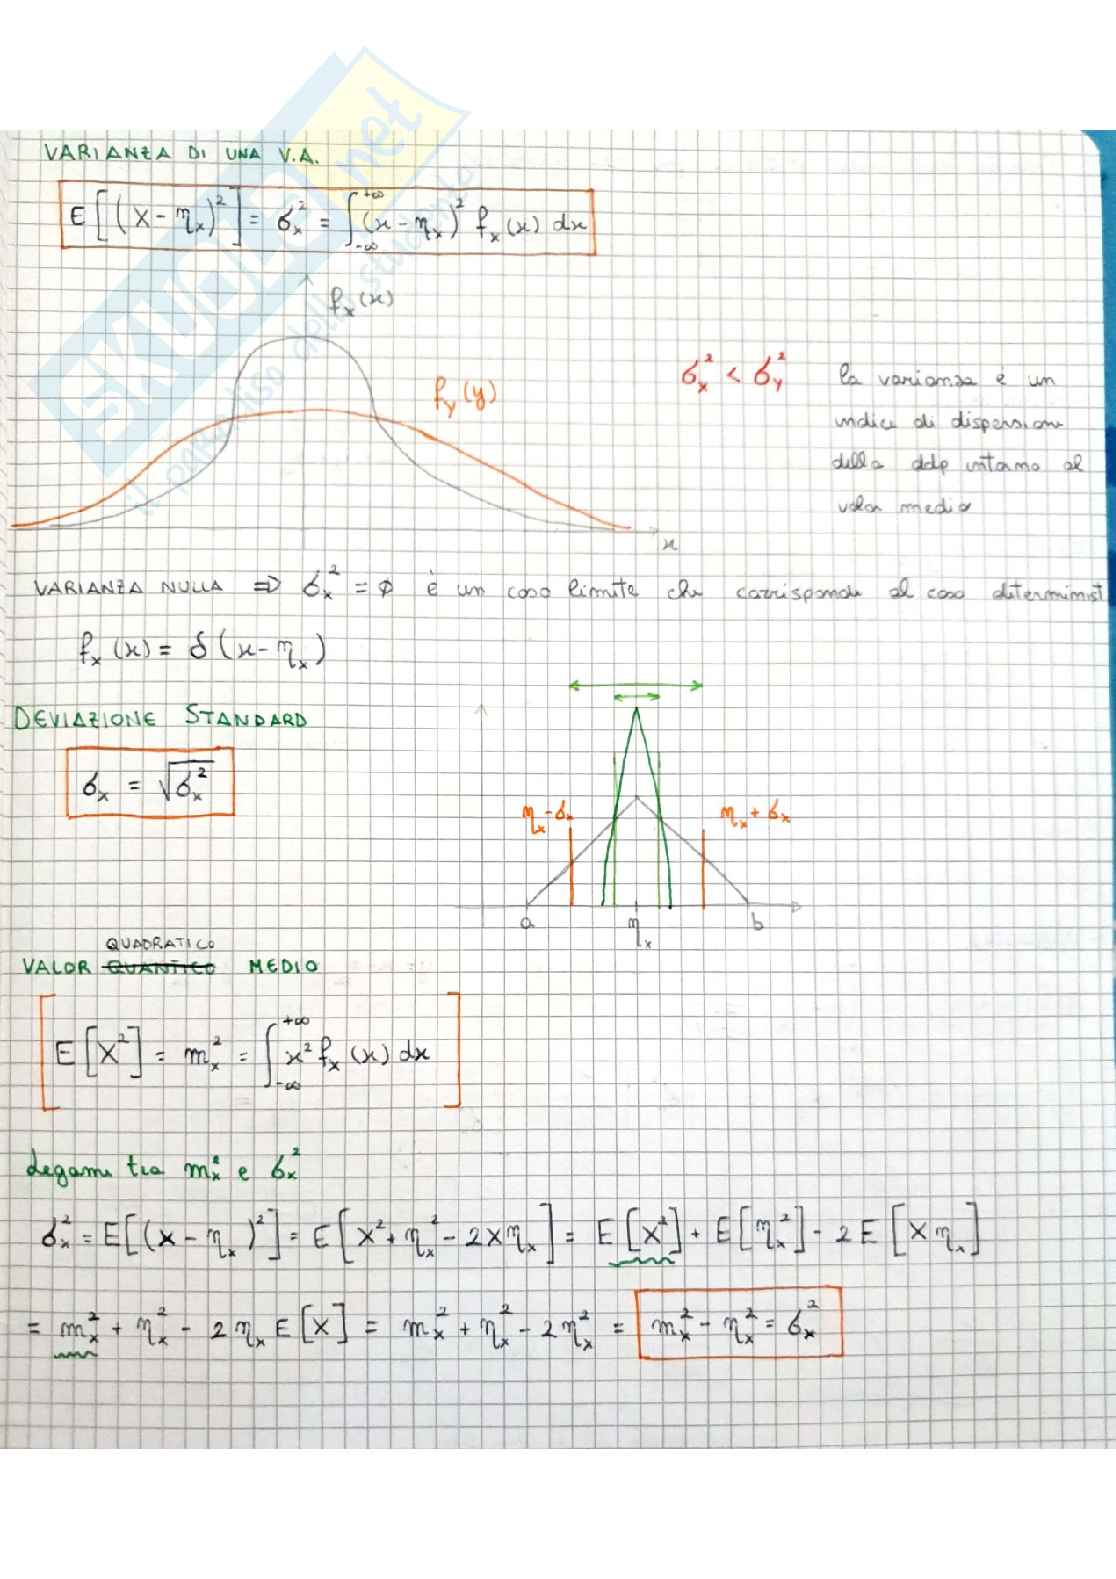 VARIANZA DI UNA V.A.
E[(X - η_x)²] = σ_x² = ∫_{-∞}^{+∞} (x - η_x)² f_x(x) dx
f_x(x)
f_Y(y)
σ_x² < σ_Y²
la varianza è un
indice di dispersione
della ddp intorno al
valor medio
x
VARIANZA NULLA ⇒ σ_x² = ϕ è un caso limite che corrisponde al caso determinist
f_x(x) = δ(x - η_x)
DEVIAZIONE STANDARD
σ_x = √σ_x²
η_x - σ_x
η_x + σ_x
a
η_x
b
QUADRATICO
VALOR QUANTICO MEDIO
E[X²] = m_x² = ∫_{-∞}^{+∞} x² f_x(x) dx
Legame tra m_x² e σ_x²
σ_x² = E[(x - η_x)²] = E[X² + η_x² - 2Xη_x] = E[X²] + E[η_x²] - 2E[Xη_x]
= m_x² + η_x² - 2η_x E[X] = m_x² + η_x² - 2η_x² = m_x² - η_x² = σ_x²
SKUOLA.net
il paradiso dello studente